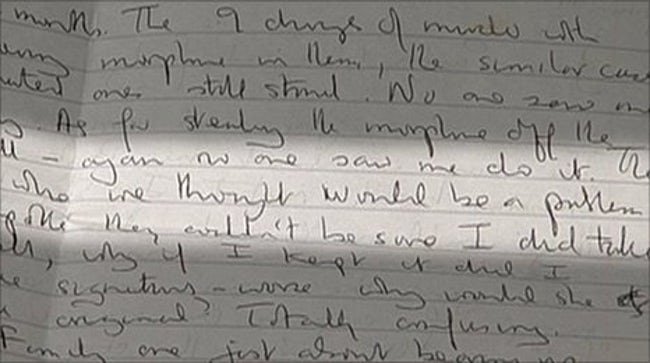 month. The 9 charges of murder with
morphine in them, the similar
ones still stand. No one saw me
As for stealing the morphine off the
- again no one saw me do it.
who we thought would be a problem
they couldn't be sure I did take
, why if I kept it did I
signatures - worse why would she
original? Totally confusing.
Family one just about